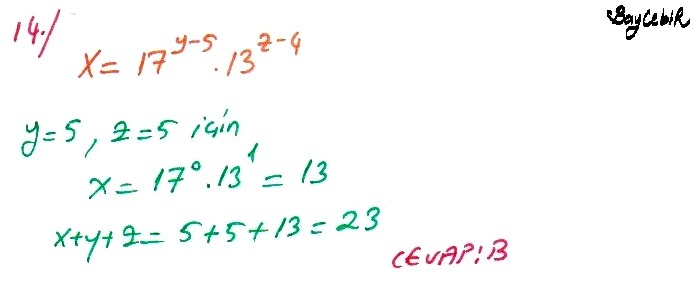 BayCebiR
14./
x = 17^{y-5} . 13^{z-4}
y=5, z=5 için
x = 17^0 . 13^1 = 13
x+y+z = 5+5+13 = 23
CEVAP: B